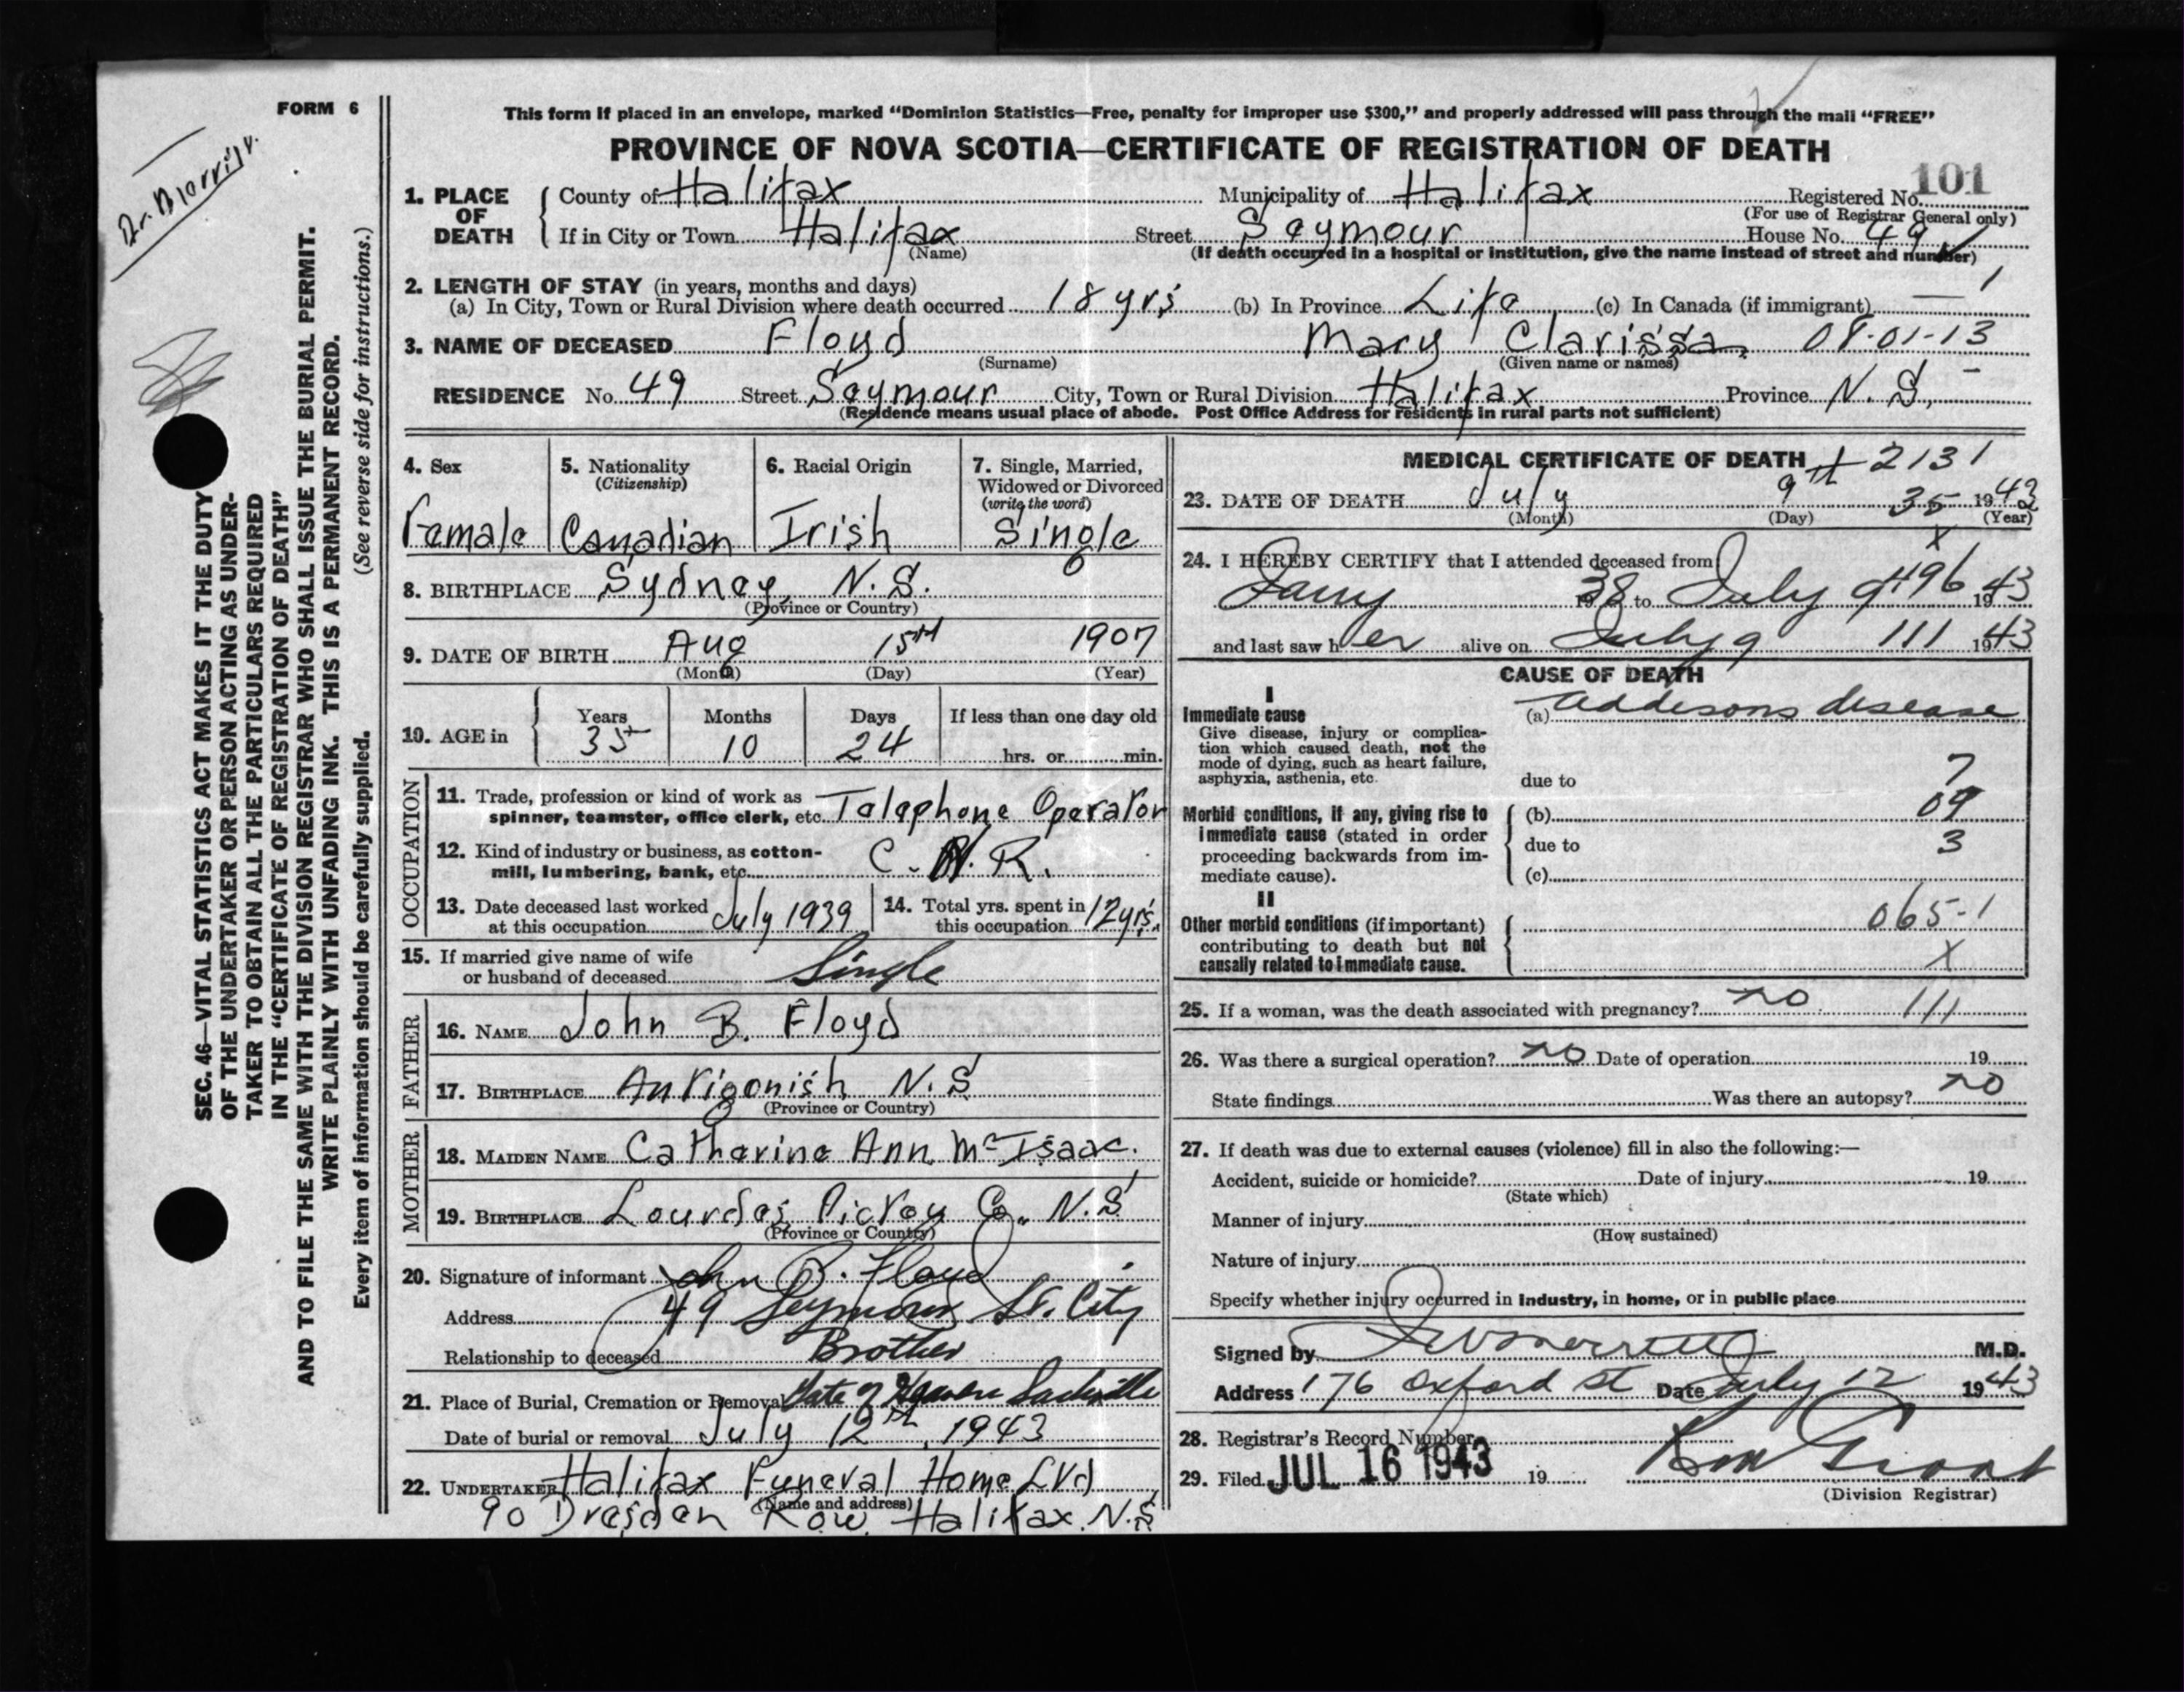 FORM 6
This form if placed in an envelope, marked “Dominion Statistics—Free, penalty for improper use $300,” and properly addressed will pass through the mail “FREE”
PROVINCE OF NOVA SCOTIA—CERTIFICATE OF REGISTRATION OF DEATH
101
1. PLACE OF DEATH { County of Halifax Municipality of Halifax Registered No.
(For use of Registrar General only)
If in City or Town Halifax Street Seymour House No. 49
(Name) (If death occurred in a hospital or institution, give the name instead of street and number)
2. LENGTH OF STAY (in years, months and days) 1
(a) In City, Town or Rural Division where death occurred 18 yrs (b) In Province Life (c) In Canada (if immigrant) —
3. NAME OF DECEASED Floyd Mary Clarissa 08-01-13
(Surname) (Given name or names)
RESIDENCE No. 49 Street Seymour City, Town or Rural Division Halifax Province N. S.
(Residence means usual place of abode. Post Office Address for residents in rural parts not sufficient)
4. Sex
Female
5. Nationality
(Citizenship)
Canadian
6. Racial Origin
Irish
7. Single, Married,
Widowed or Divorced
(write the word)
Single
8. BIRTHPLACE Sydney, N. S.
(Province or Country)
9. DATE OF BIRTH Aug 15th 1907
(Month) (Day) (Year)
10. AGE in { Years Months Days If less than one day old
35 10 24 hrs. or min.
OCCUPATION
11. Trade, profession or kind of work as
spinner, teamster, office clerk, etc. Telephone Operator
12. Kind of industry or business, as cotton-
mill, lumbering, bank, etc. C. N. R.
13. Date deceased last worked
at this occupation July 1939
14. Total yrs. spent in
this occupation 12 yrs.
15. If married give name of wife
or husband of deceased Single
FATHER
16. NAME John B. Floyd
17. BIRTHPLACE Antigonish N. S
(Province or Country)
MOTHER
18. MAIDEN NAME Catherine Ann McIsaac.
19. BIRTHPLACE Lourdes Pictou Co., N. S
(Province or Country)
20. Signature of informant John B. Floyd
Address 49 Seymour St. City
Relationship to deceased Brother
21. Place of Burial, Cremation or Removal Gate of Heaven Sackville
Date of burial or removal July 12th, 1943
22. UNDERTAKER Halifax Funeral Home Ltd
(Name and address)
90 Dresden Row, Halifax, N. S
MEDICAL CERTIFICATE OF DEATH # 2131
23. DATE OF DEATH July 9th 35 1943
(Month) (Day) (Year)
X
24. I HEREBY CERTIFY that I attended deceased from
1938 to July 9 496 1943
and last saw her alive on July 9 111 1943
CAUSE OF DEATH
I
Immediate cause
Give disease, injury or complica-
tion which caused death, not the
mode of dying, such as heart failure,
asphyxia, asthenia, etc.
(a) Addisons disease
due to 7
Morbid conditions, if any, giving rise to
immediate cause (stated in order
proceeding backwards from im-
mediate cause).
(b) 09
due to 3
(c)
II
Other morbid conditions (if important)
contributing to death but not
causally related to immediate cause.
065-1
X
25. If a woman, was the death associated with pregnancy? no 111
26. Was there a surgical operation? no Date of operation 19
State findings Was there an autopsy? no
27. If death was due to external causes (violence) fill in also the following:—
Accident, suicide or homicide? Date of injury 19
(State which)
Manner of injury
(How sustained)
Nature of injury
Specify whether injury occurred in industry, in home, or in public place
Signed by M.D.
Address 176 Oxford St Date July 12 1943
28. Registrar's Record Number
29. Filed JUL 16 1943 19
(Division Registrar)
SEC. 46—VITAL STATISTICS ACT MAKES IT THE DUTY
OF THE UNDERTAKER OR PERSON ACTING AS UNDER-
TAKER TO OBTAIN ALL THE PARTICULARS REQUIRED
IN THE “CERTIFICATE OF REGISTRATION OF DEATH”
AND TO FILE THE SAME WITH THE DIVISION REGISTRAR WHO SHALL ISSUE THE BURIAL PERMIT.
WRITE PLAINLY WITH UNFADING INK. THIS IS A PERMANENT RECORD.
Every item of information should be carefully supplied. (See reverse side for instructions.)